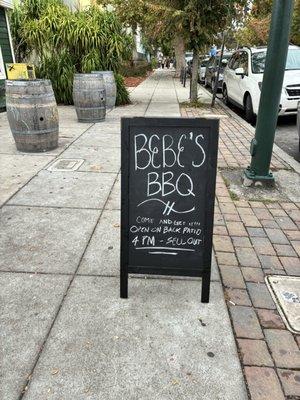 BEBE'S
BBQ
COME AND GET IT!!!
OPEN ON BACK PATIO
4 PM - SELL OUT